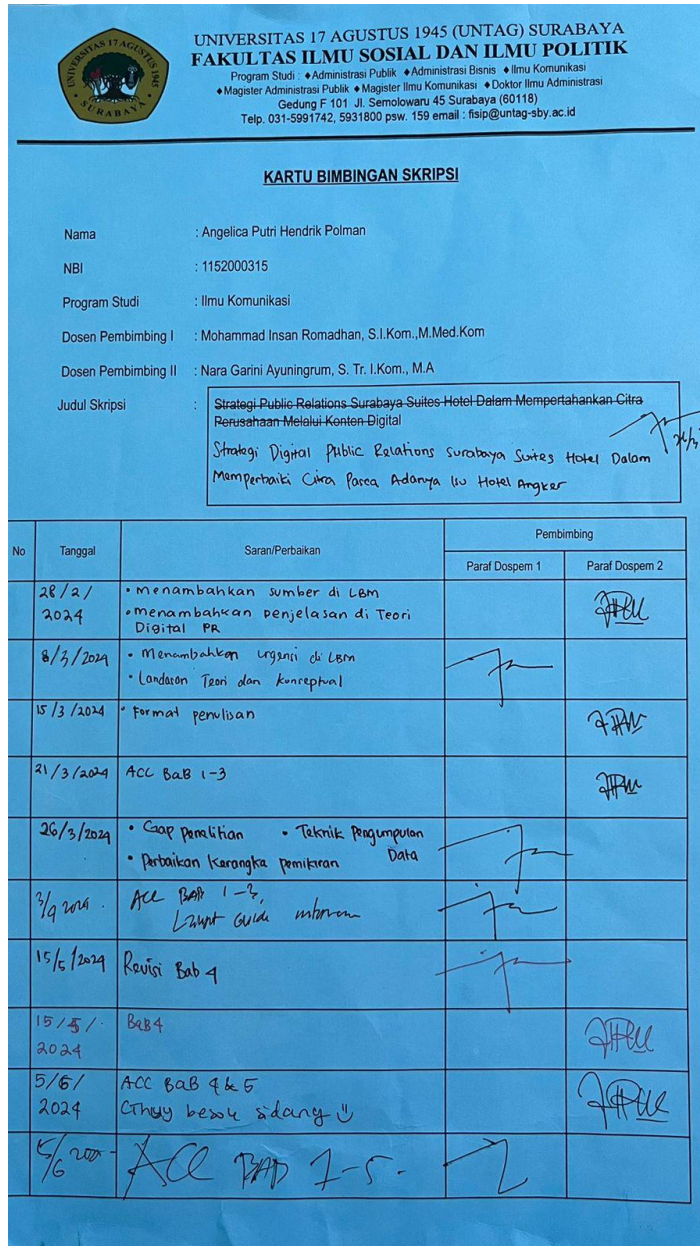 UNIVERSITAS 17 AGUSTUS 1945
SURABAYA
UNIVERSITAS 17 AGUSTUS 1945 (UNTAG) SURABAYA
FAKULTAS ILMU SOSIAL DAN ILMU POLITIK
Program Studi : ♦Administrasi Publik ♦Administrasi Bisnis ♦Ilmu Komunikasi
♦Magister Administrasi Publik ♦Magister Ilmu Komunikasi ♦Doktor Ilmu Administrasi
Gedung F 101 Jl. Semolowaru 45 Surabaya (60118)
Telp. 031-5991742, 5931800 psw. 159 email : fisip@untag-sby.ac.id
KARTU BIMBINGAN SKRIPSI
Nama : Angelica Putri Hendrik Polman
NBI : 1152000315
Program Studi : Ilmu Komunikasi
Dosen Pembimbing I : Mohammad Insan Romadhan, S.I.Kom.,M.Med.Kom
Dosen Pembimbing II : Nara Garini Ayuningrum, S. Tr. I.Kom., M.A
Judul Skripsi : Strategi Public Relations Surabaya Suites Hotel Dalam Mempertahankan Citra
Perusahaan Melalui Konten Digital
Strategi Digital Public Relations Surabaya Suites Hotel Dalam
Memperbaiki Citra Pasca Adanya Isu Hotel Angker
No Tanggal Saran/Perbaikan Pembimbing
Paraf Dospem 1 Paraf Dospem 2
28/2/ • Menambahkan sumber di LBM
2024 • menambahkan penjelasan di Teori
Digital PR
8/3/2024 • Menambahkan urgensi di LBM
• Landasan Teori dan Konseptual
15/3/2024 • Format penulisan
21/3/2024 ACC BaB 1-3
26/3/2024 • Gap Penelitian • Teknik Pengumpulan
Data
• Perbaikan Kerangka pemikiran
ACC BAB 1-3,
Lanjut Guide
15/5/2024 Revisi Bab 4
15/5/ BaB 4
2024
5/6/ ACC BaB 4 & 5
2024 besok sidang
5/6 ACC BAB 1-5-